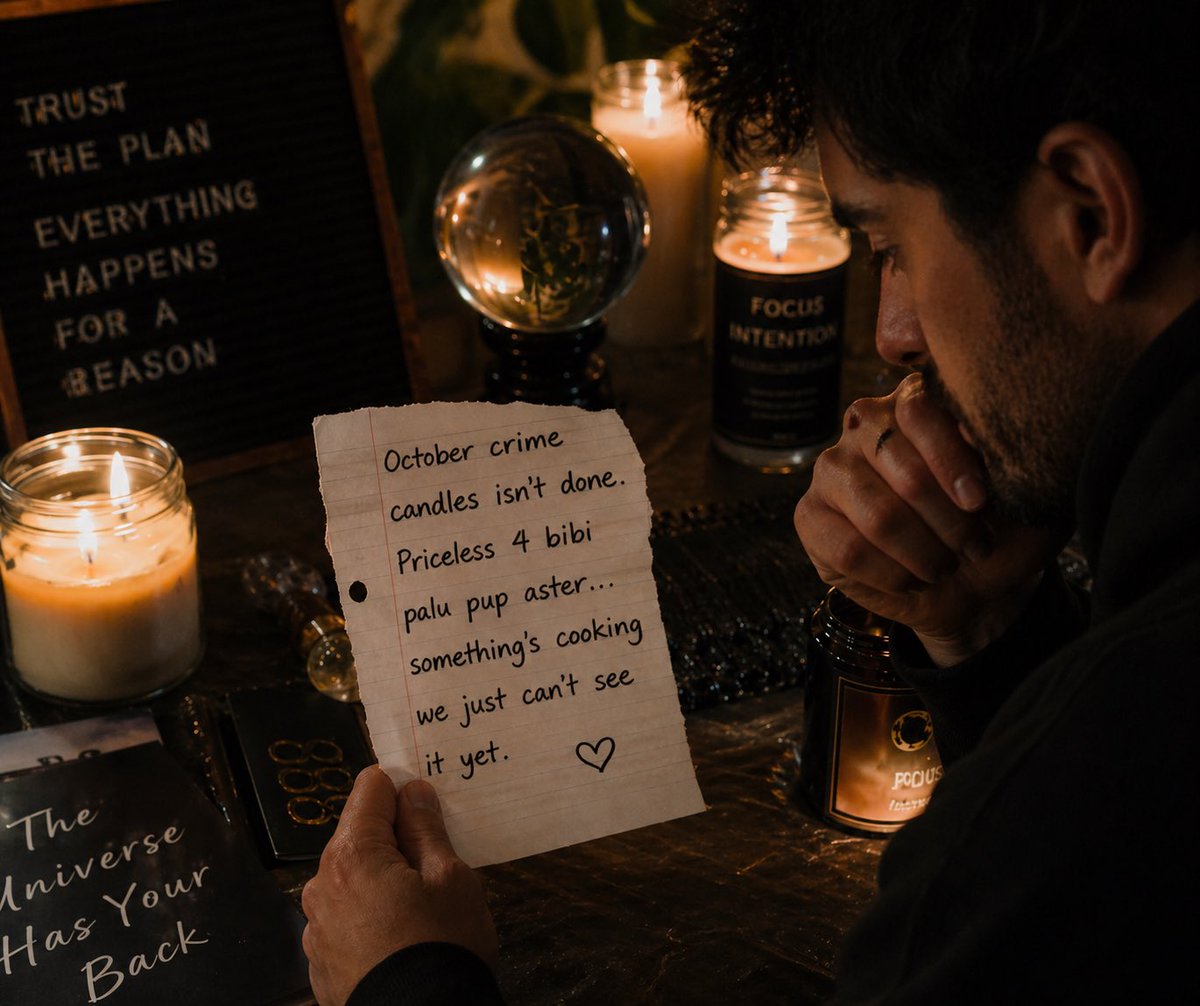 TRUST
THE PLAN
EVERYTHING
HAPPENS
FOR A
REASON
FOCUS
INTENTION
October crime
candles isn't done.
Priceless 4 bibi
palu pup aster...
something's cooking
we just can't see
it yet.
The
Universe
Has Your
Back
FOCUS